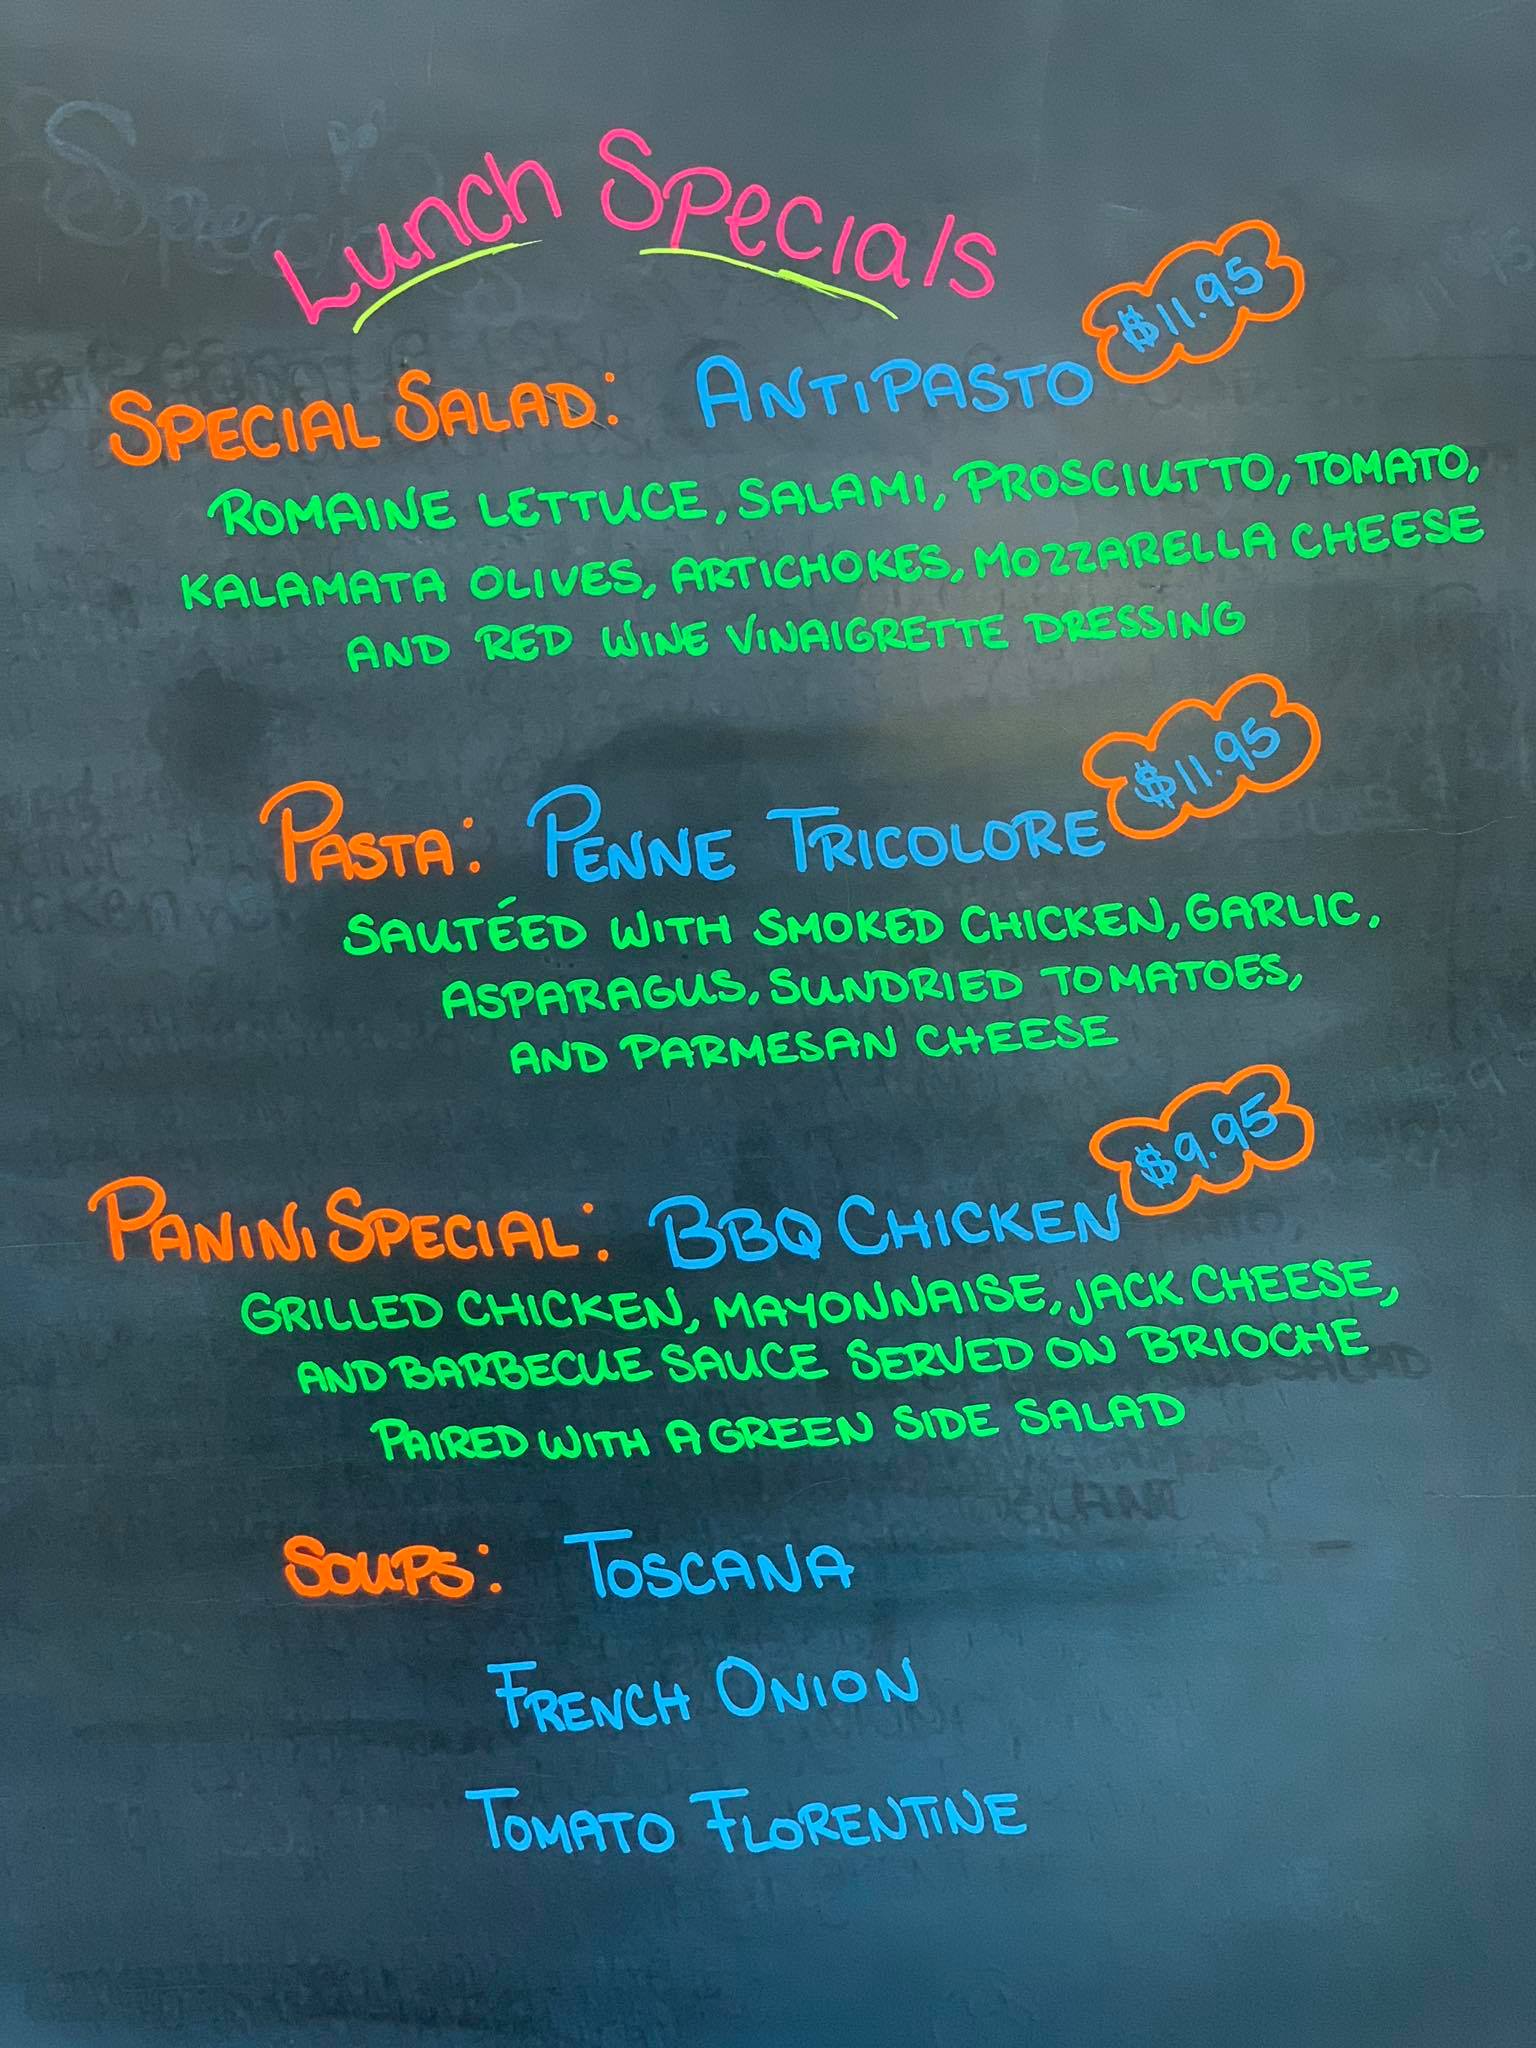 Lunch Specials
SPECIAL SALAD: ANTIPASTO $11.95
ROMAINE LETTUCE, SALAMI, PROSCIUTTO, TOMATO,
KALAMATA OLIVES, ARTICHOKES, MOZZARELLA CHEESE
AND RED WINE VINAIGRETTE DRESSING
PASTA: PENNE TRICOLORE $11.95
SAUTÉED WITH SMOKED CHICKEN, GARLIC,
ASPARAGUS, SUNDRIED TOMATOES,
AND PARMESAN CHEESE
PANINI SPECIAL: BBQ CHICKEN $9.95
GRILLED CHICKEN, MAYONNAISE, JACK CHEESE,
AND BARBECUE SAUCE SERVED ON BRIOCHE
PAIRED WITH A GREEN SIDE SALAD
SOUPS: TOSCANA
FRENCH ONION
TOMATO FLORENTINE